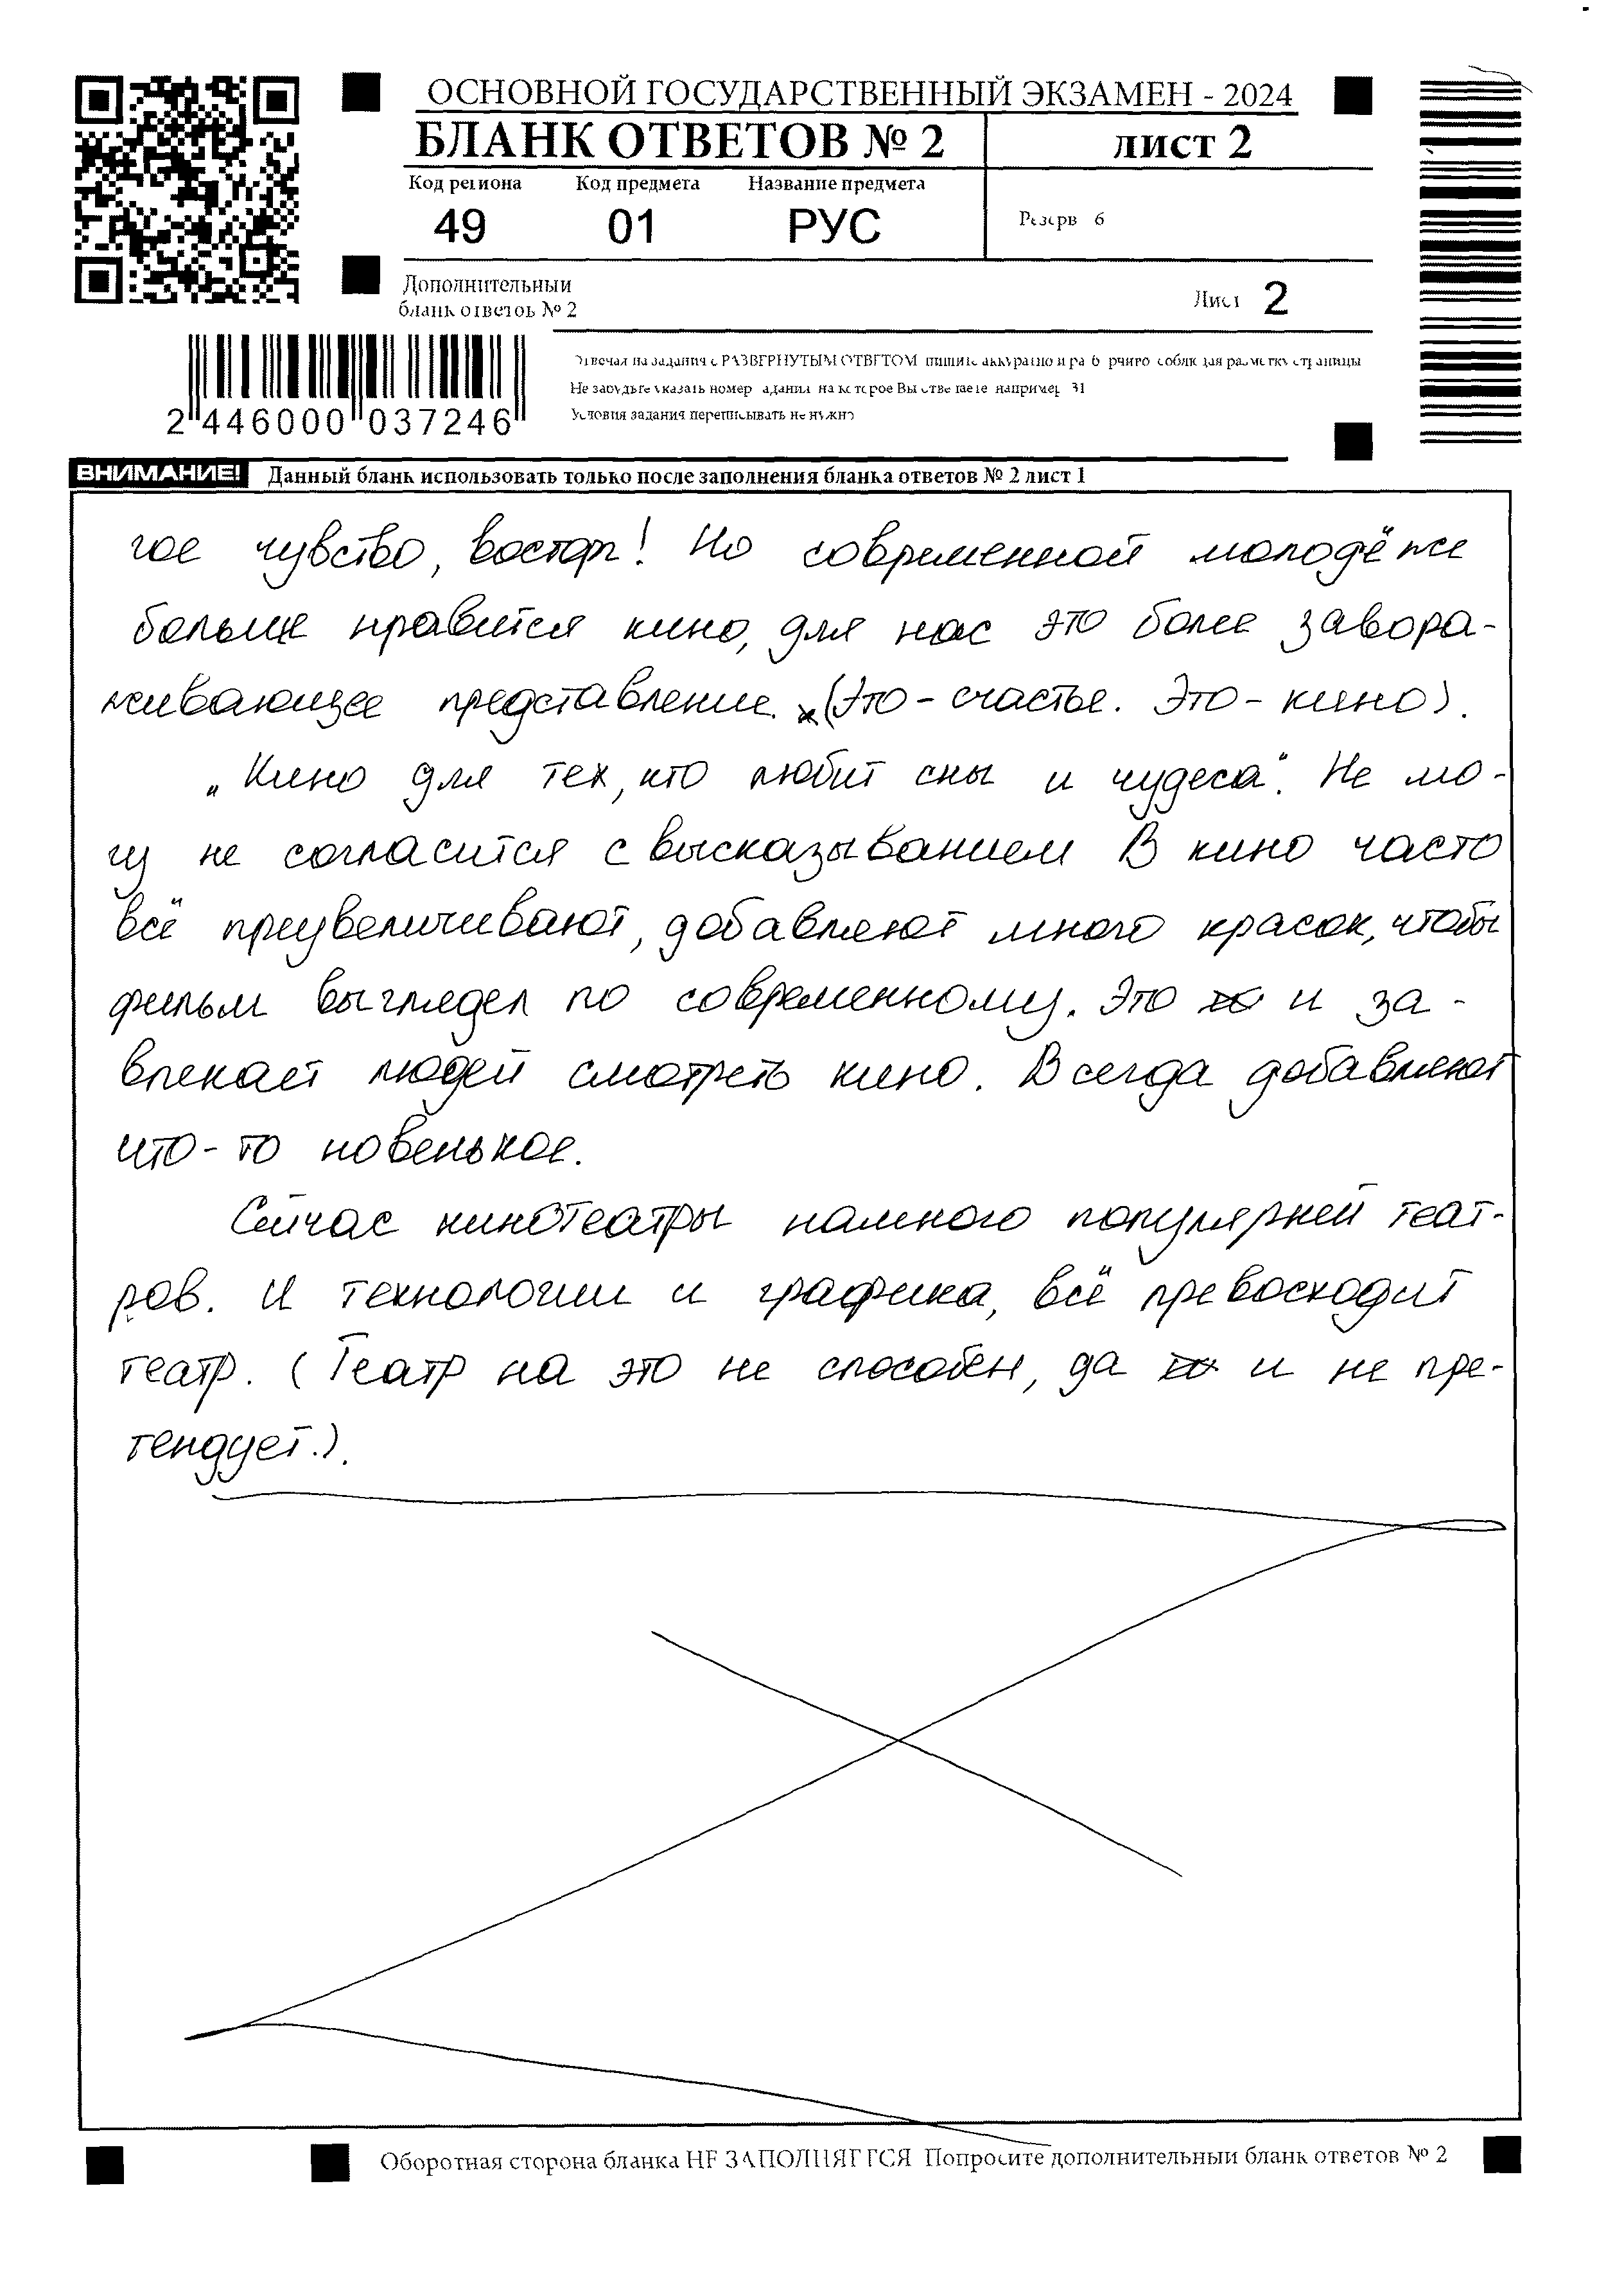 ОСНОВНОЙ ГОСУДАРСТВЕННЫЙ ЭКЗАМЕН - 2024
БЛАНК ОТВЕТОВ № 2 лист 2
Код региона Код предмета Название предмета
49 01 РУС
Резерв 6
Дополнительный
бланк ответов № 2
Лист 2
Отвечая на задания с РАЗВЕРНУТЫМ ОТВЕТОМ пишите аккуратно и разборчиво соблюдая разметку страницы
Не забудьте указать номер задания на которое Вы отвечаете например 31
Условия задания переписывать не нужно
2 446000 037246
ВНИМАНИЕ! Данный бланк использовать только после заполнения бланка ответов № 2 лист 1
гое чувство, восторг! Но современной молодёже
больше нравится кино, для нас это более завора-
живающее представление. (Это - счастье. Это - кино).
„Кино для тех, кто любит сны и чудеса". Не мо-
гу не согласится с высказыванием В кино часто
всё преувеличивают, добавляют много красок, чтобы
фильм выглядел по современному. Это то и за-
влекает людей смотреть кино. Всегда добавляют
что-то новенькое.
Сейчас кинотеатры намного популярней теат-
ров. И технологии и графика, всё превосходит
театр. (Театр на это не способен, да то и не пре-
тендует.).
Оборотная сторона бланка НЕ ЗАПОЛНЯЕТСЯ Попросите дополнительный бланк ответов № 2